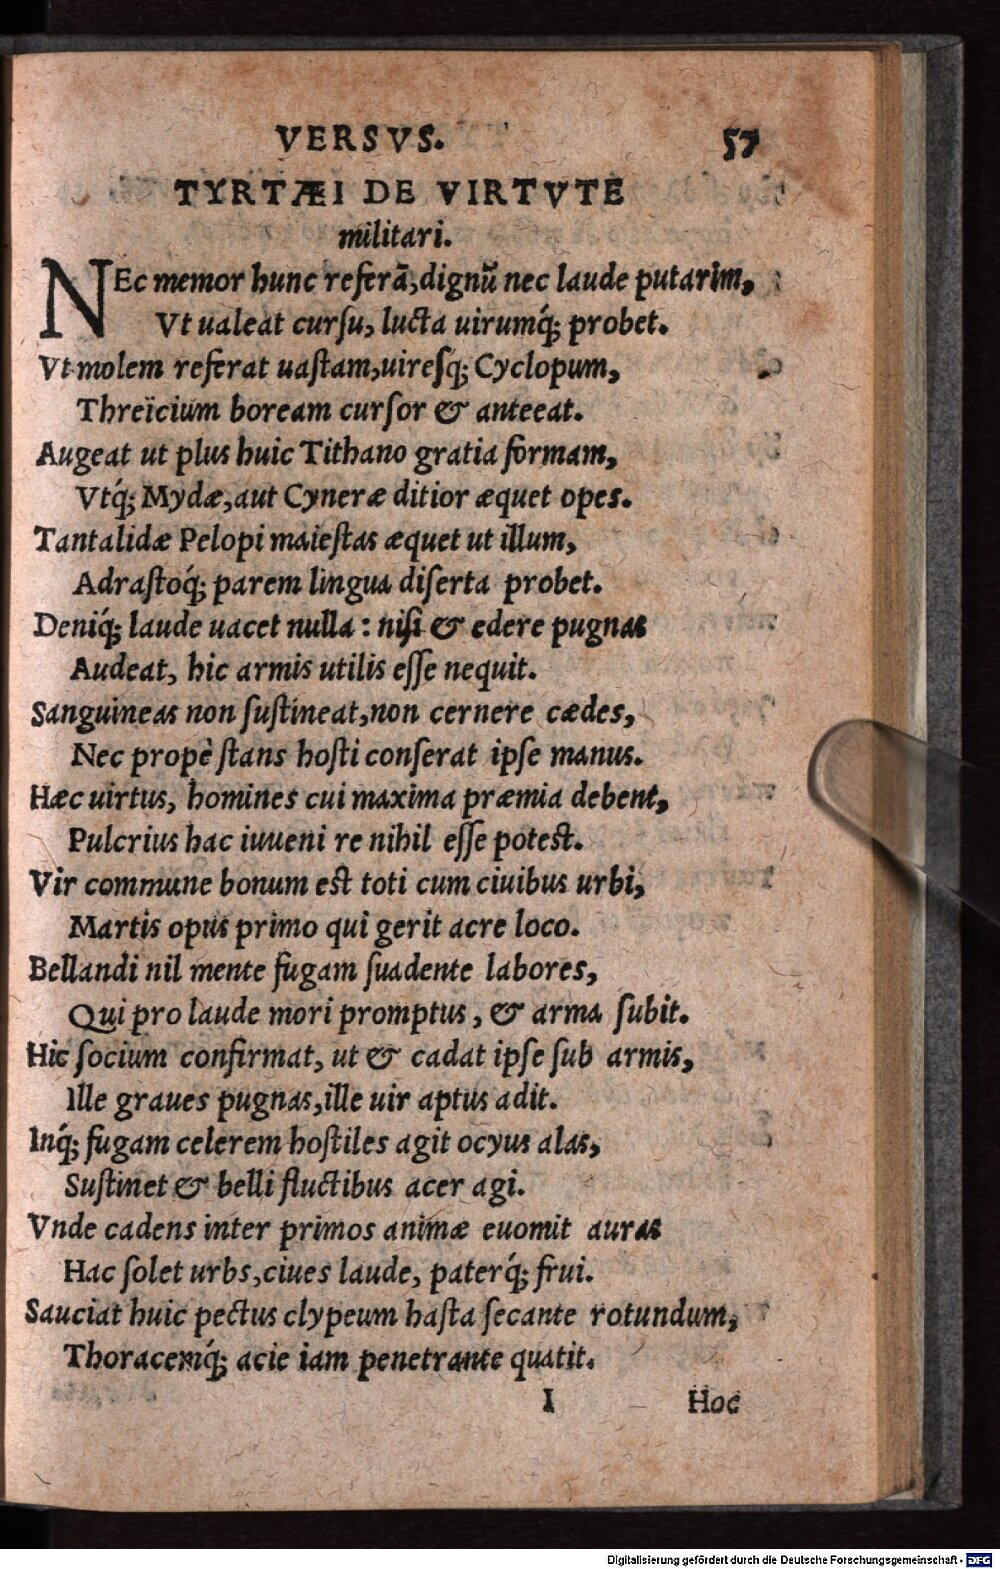 VERSVS. 57
TYRTÆI DE VIRTVTE
militari.
NEc memor hunc referā, dignũ nec laude putarim,
Vt ualeat curſu, lucta uirumq́; probet.
Vt molem referat uaſtam, uireſq́; Cyclopum,
Threïcium boream curſor & anteeat.
Augeat ut plus huic Tithano gratia formam,
Vtq́; Mydæ, aut Cyneræ ditior æquet opes.
Tantalidæ Pelopi maieſtas æquet ut illum,
Adraſtoq́; parem lingua diſerta probet.
Deniq́; laude uacet nulla: niſi & edere pugnas
Audeat, hic armis utilis eſſe nequit.
Sanguineas non ſuſtineat, non cernere cædes,
Nec propè ſtans hoſti conſerat ipſe manus.
Hæc uirtus, homines cui maxima præmia debent,
Pulcrius hac iuueni re nihil eſſe poteſt.
Vir commune bonum eſt toti cum ciuibus urbi,
Martis opus primo qui gerit acre loco.
Bellandi nil mente fugam ſuadente labores,
Qui pro laude mori promptus, & arma ſubit.
Hic ſocium confirmat, ut & cadat ipſe ſub armis,
Ille graues pugnas, ille uir aptus adit.
Inq́; fugam celerem hoſtiles agit ocyus alas,
Suſtinet & belli fluctibus acer agi.
Vnde cadens inter primos animæ euomit auras
Hac ſolet urbs, ciues laude, paterq́; frui.
Sauciat huic pectus clypeum haſta ſecante rotundum,
Thoracemq́; acie iam penetrante quatit.
I Hoc
Digitalisierung gefördert durch die Deutsche Forschungsgemeinschaft - DFG